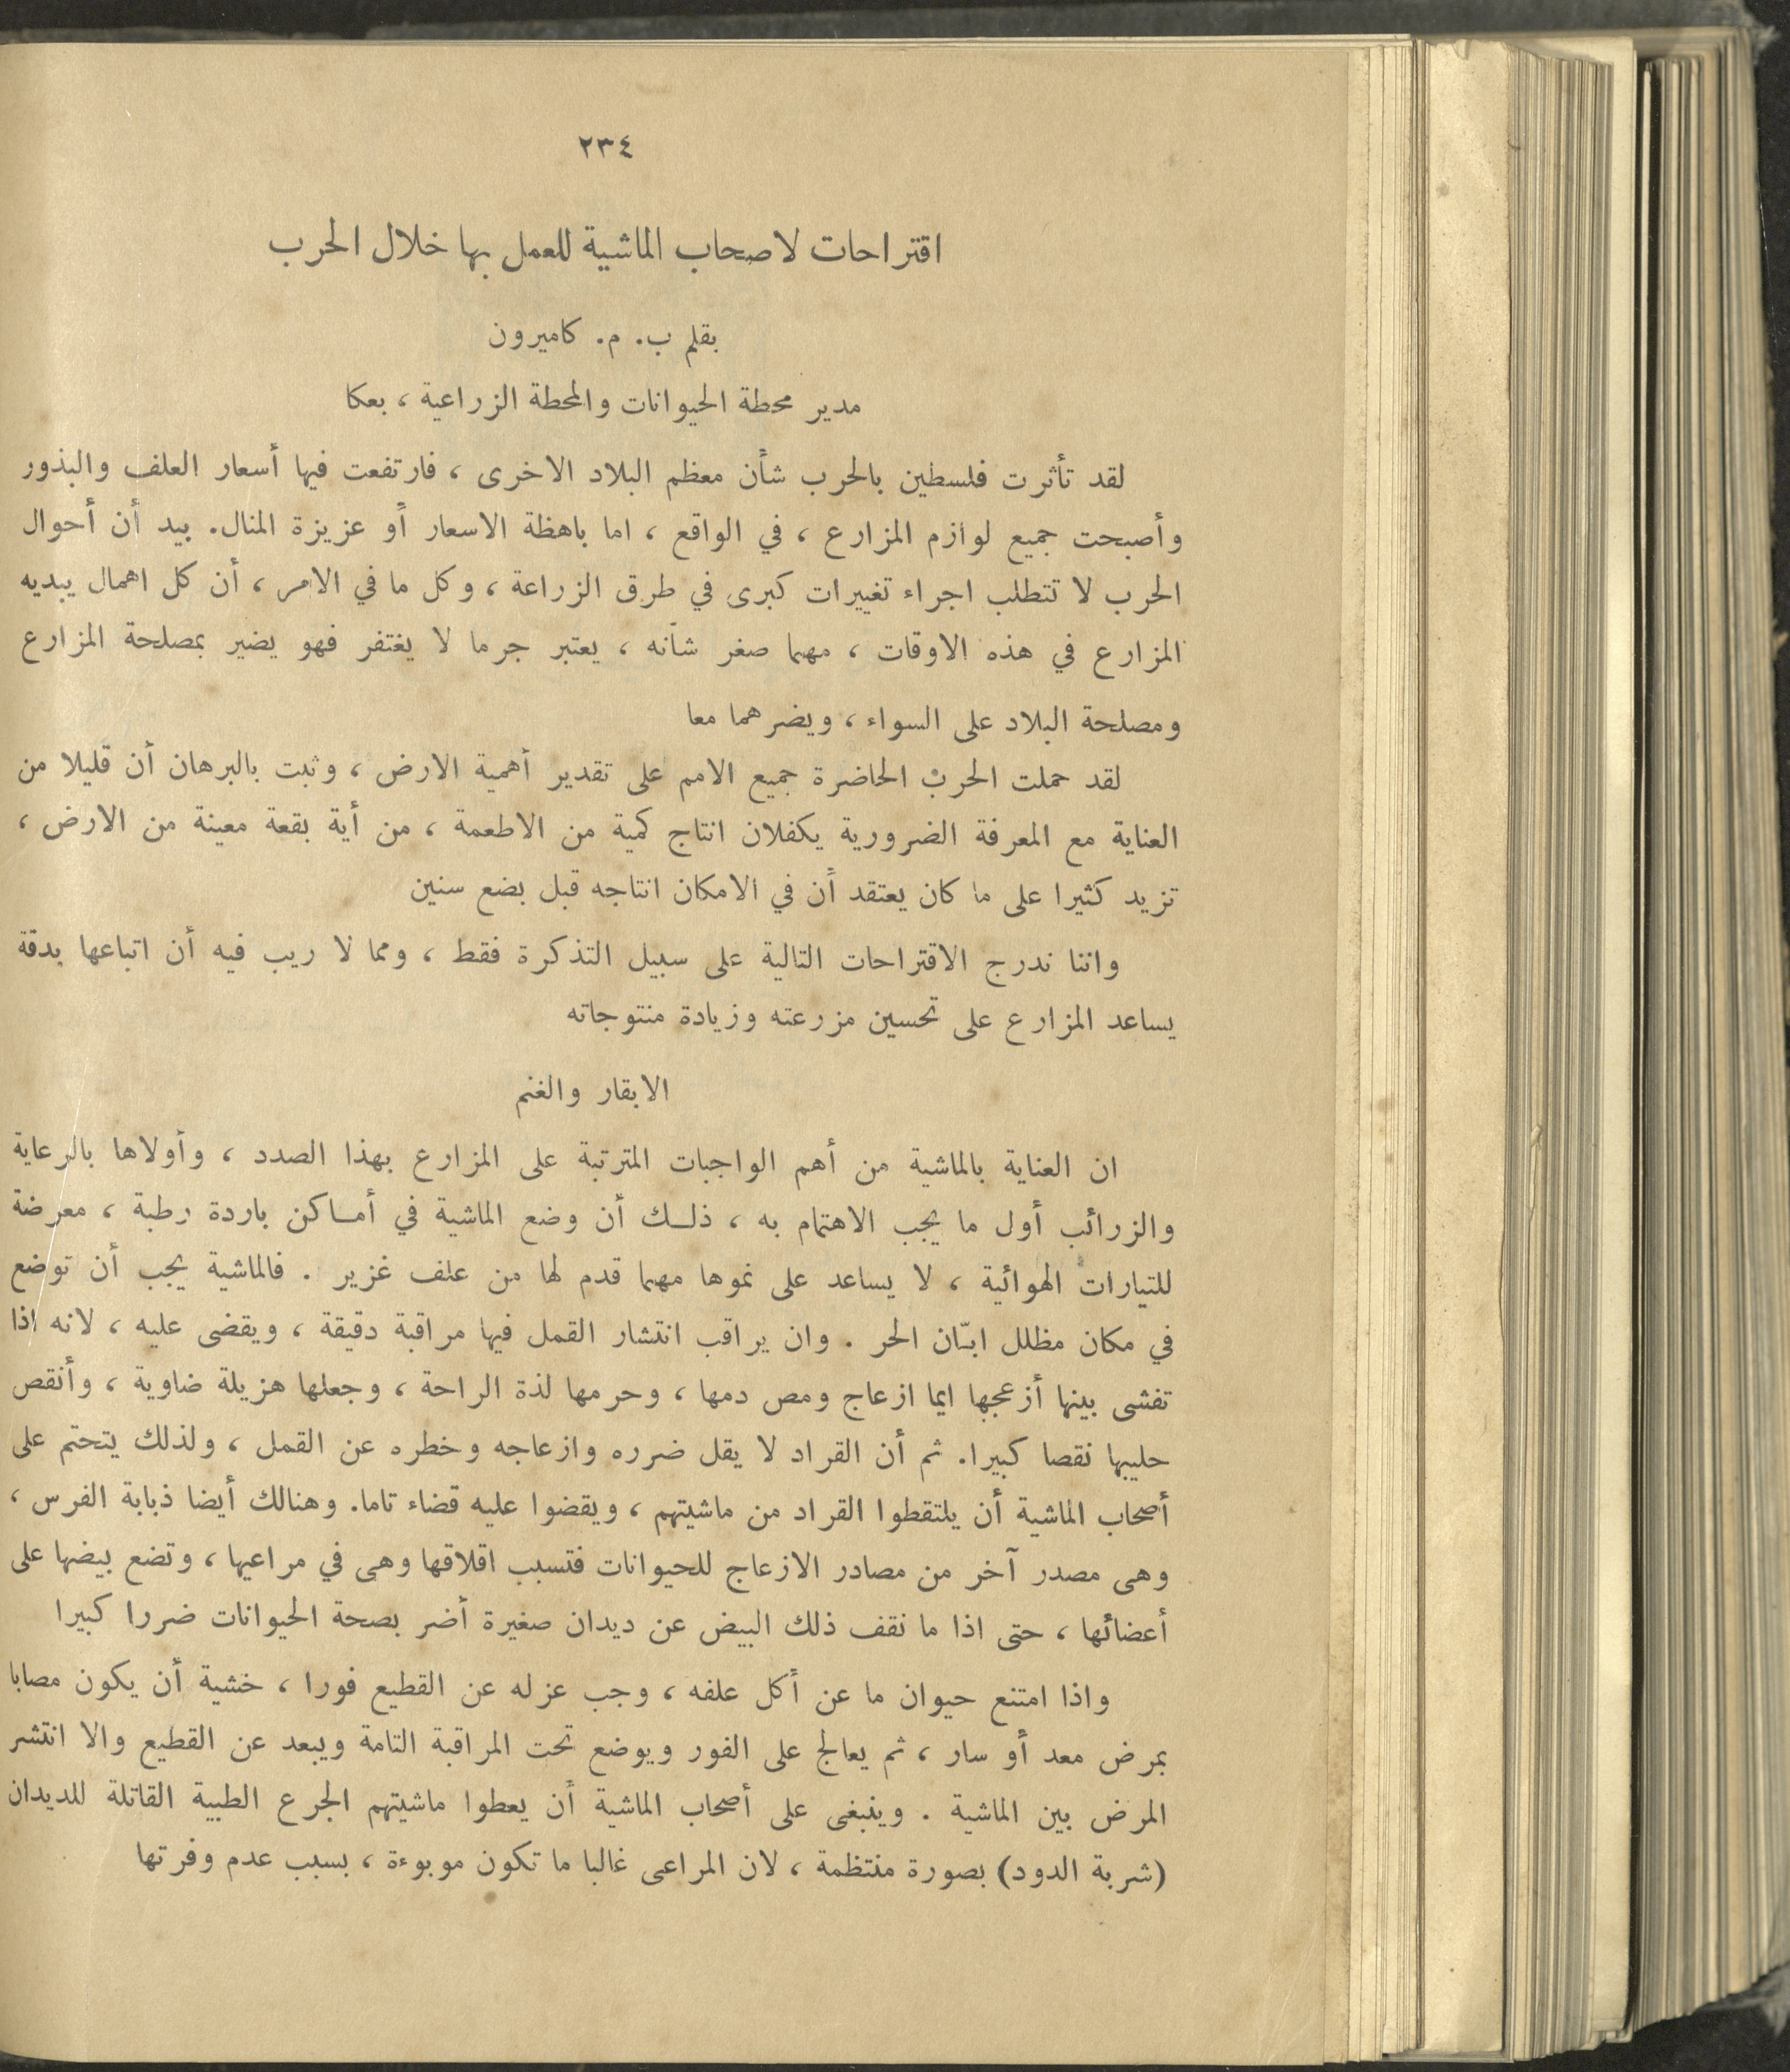 ٢٣٤
اقتراحات لاصحاب الماشية للعمل بها خلال الحرب
بقلم ب. م. كاميرون
مدير محطة الحيوانات والمحطة الزراعية ، بعكا
لقد تأثرت فلسطين بالحرب شأن معظم البلاد الاخرى ، فارتفعت فيها أسعار العلف والبذور
وأصبحت جميع لوازم المزارع ، في الواقع ، اما باهظة الاسعار أو عزيزة المنال. بيد أن أحوال
الحرب لا تتطلب اجراء تغييرات كبرى في طرق الزراعة ، وكل ما في الامر ، أن كل اهمال يبديه
المزارع في هذه الاوقات ، مهما صغر شأنه ، يعتبر جرما لا يغتفر فهو يضير بمصلحة المزارع
ومصلحة البلاد على السواء ، ويضرهما معا
لقد حملت الحرب الحاضرة جميع الامم على تقدير أهمية الارض ، وثبت بالبرهان أن قليلا من
العناية مع المعرفة الضرورية يكفلان انتاج كمية من الاطعمة ، من أية بقعة معينة من الارض ،
تزيد كثيرا على ما كان يعتقد أن في الامكان انتاجه قبل بضع سنين
واننا ندرج الاقتراحات التالية على سبيل التذكرة فقط ، ومما لا ريب فيه أن اتباعها بدقة
يساعد المزارع على تحسين مزرعته وزيادة منتوجاته
الابقار والغنم
ان العناية بالماشية من أهم الواجبات المترتبة على المزارع بهذا الصدد ، وأولاها بالرعاية
والزرائب أول ما يجب الاهتمام به ، ذلك أن وضع الماشية في أماكن باردة رطبة ، معرضة
للتيارات الهوائية ، لا يساعد على نموها مهما قدم لها من علف غزير . فالماشية يجب أن توضع
في مكان مظلل ابّان الحر . وان يراقب انتشار القمل فيها مراقبة دقيقة ، ويقضى عليه ، لانه اذا
تفشى بينها أزعجها ايما ازعاج ومص دمها ، وحرمها لذة الراحة ، وجعلها هزيلة ضاوية ، وأنقص
حليبها نقصا كبيرا. ثم أن القراد لا يقل ضرره وازعاجه وخطره عن القمل ، ولذلك يتحتم على
أصحاب الماشية أن يلتقطوا القراد من ماشيتهم ، ويقضوا عليه قضاء تاما. وهنالك أيضا ذبابة الفرس ،
وهى مصدر آخر من مصادر الازعاج للحيوانات فتسبب اقلاقها وهى في مراعيها ، وتضع بيضها على
أعضائها ، حتى اذا ما نقف ذلك البيض عن ديدان صغيرة أضر بصحة الحيوانات ضررا كبيرا
واذا امتنع حيوان ما عن أكل علفه ، وجب عزله عن القطيع فورا ، خشية أن يكون مصابا
بمرض معد أو سار ، ثم يعالج على الفور ويوضع تحت المراقبة التامة ويبعد عن القطيع والا انتشر
المرض بين الماشية . وينبغى على أصحاب الماشية أن يعطوا ماشيتهم الجرع الطبية القاتلة للديدان
(شربة الدود) بصورة منتظمة ، لان المراعى غالبا ما تكون موبوءة ، بسبب عدم وفرتها